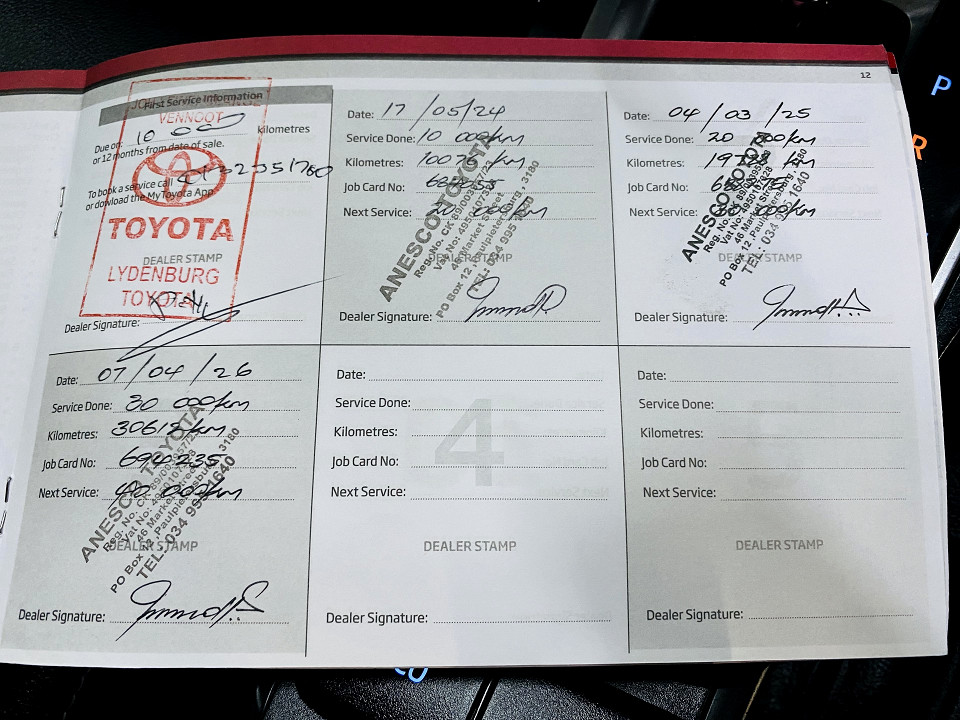 12
First Service Information
VENNOOT
Due on: 10 000 kilometres
or 12 months from date of sale.
To book a service call
or dowload the MyToyota App
TOYOTA
DEALER STAMP
LYDENBURG
TOYOTA
Dealer Signature:
Date: 17/05/24
Service Done: 10 000km
Kilometres: 10076 km
Job Card No:
Next Service: 20 000km
ANESCO TOYOTA
46 Market Street
PO Box 12, Paulpietersburg, 3180
TEL: 034 995 1640
DEALER STAMP
Dealer Signature:
Date: 04/03/25
Service Done: 20 000km
Kilometres: km
Job Card No:
Next Service: 30 000km
ANESCO TOYOTA
46 Market Street
PO Box 12, Paulpietersburg, 3180
TEL: 034 995 1640
DEALER STAMP
Dealer Signature:
Date: 07/04/26
Service Done: 30 000km
Kilometres: 30612km
Job Card No: 694235
Next Service: 40 000km
ANESCO TOYOTA
46 Market Street
PO Box 12, Paulpietersburg, 3180
TEL: 034 995 1640
DEALER STAMP
Dealer Signature:
4
Date:
Service Done:
Kilometres:
Job Card No:
Next Service:
DEALER STAMP
Dealer Signature:
Date:
Service Done:
Kilometres:
Job Card No:
Next Service:
DEALER STAMP
Dealer Signature:
P
R